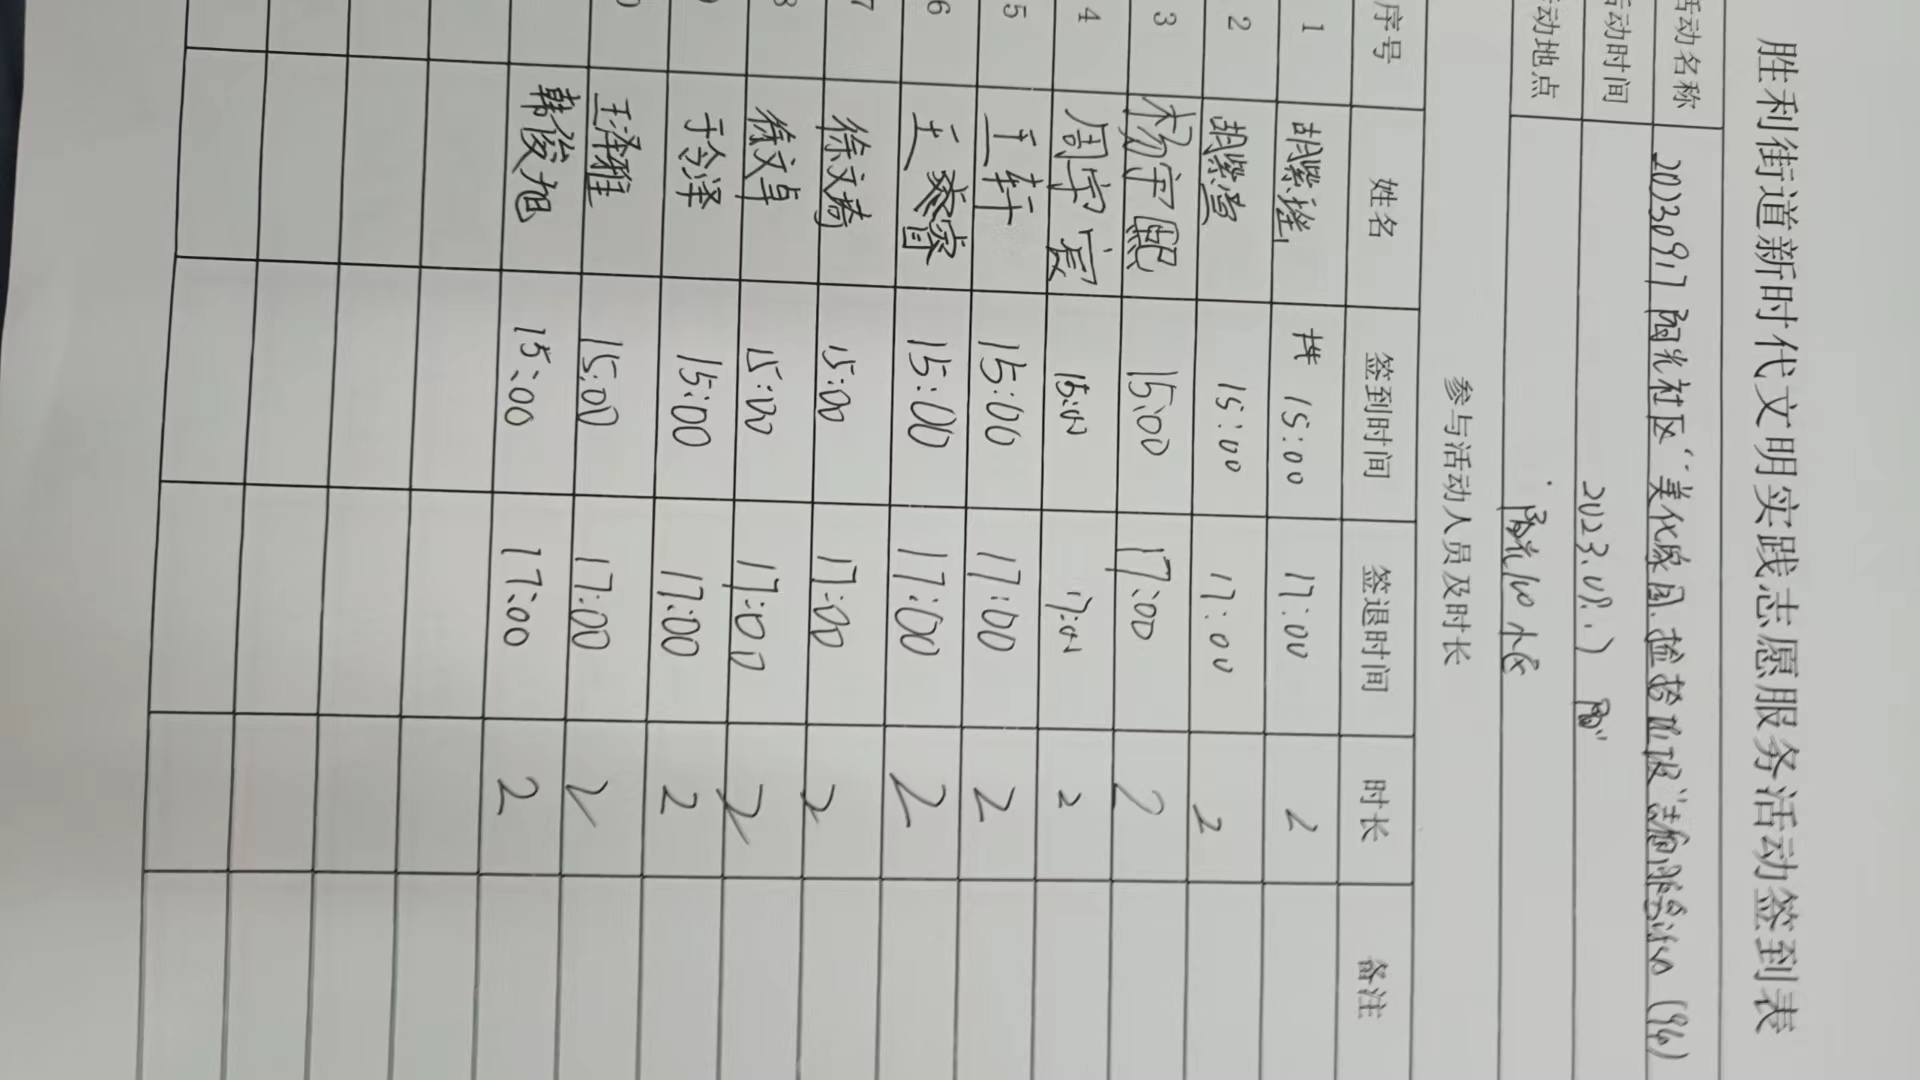 胜利街道新时代文明实践志愿服务活动签到表
活动名称 20230917 阳光社区“美化家园
活动时间 2023.09.17
动地点 阳光100小区
参与活动人员及时长
序号 姓名 签到时间 签退时间 时长 备注
1 胡紫瑄 15:00 17:00 2
2 胡紫萱 15:00 17:00 2
3 杨宇熙 15:00 17:00 2
4 周宇宸 15:00 17:00 2
5 王轩 15:00 17:00 2
6 王睿 15:00 17:00 2
7 徐文琦 15:00 17:00 2
8 徐文卓 15:00 17:00 2
9 于令泽 15:00 17:00 2
0 王泽雅 15:00 17:00 2
韩俊旭 15:00 17:00 2